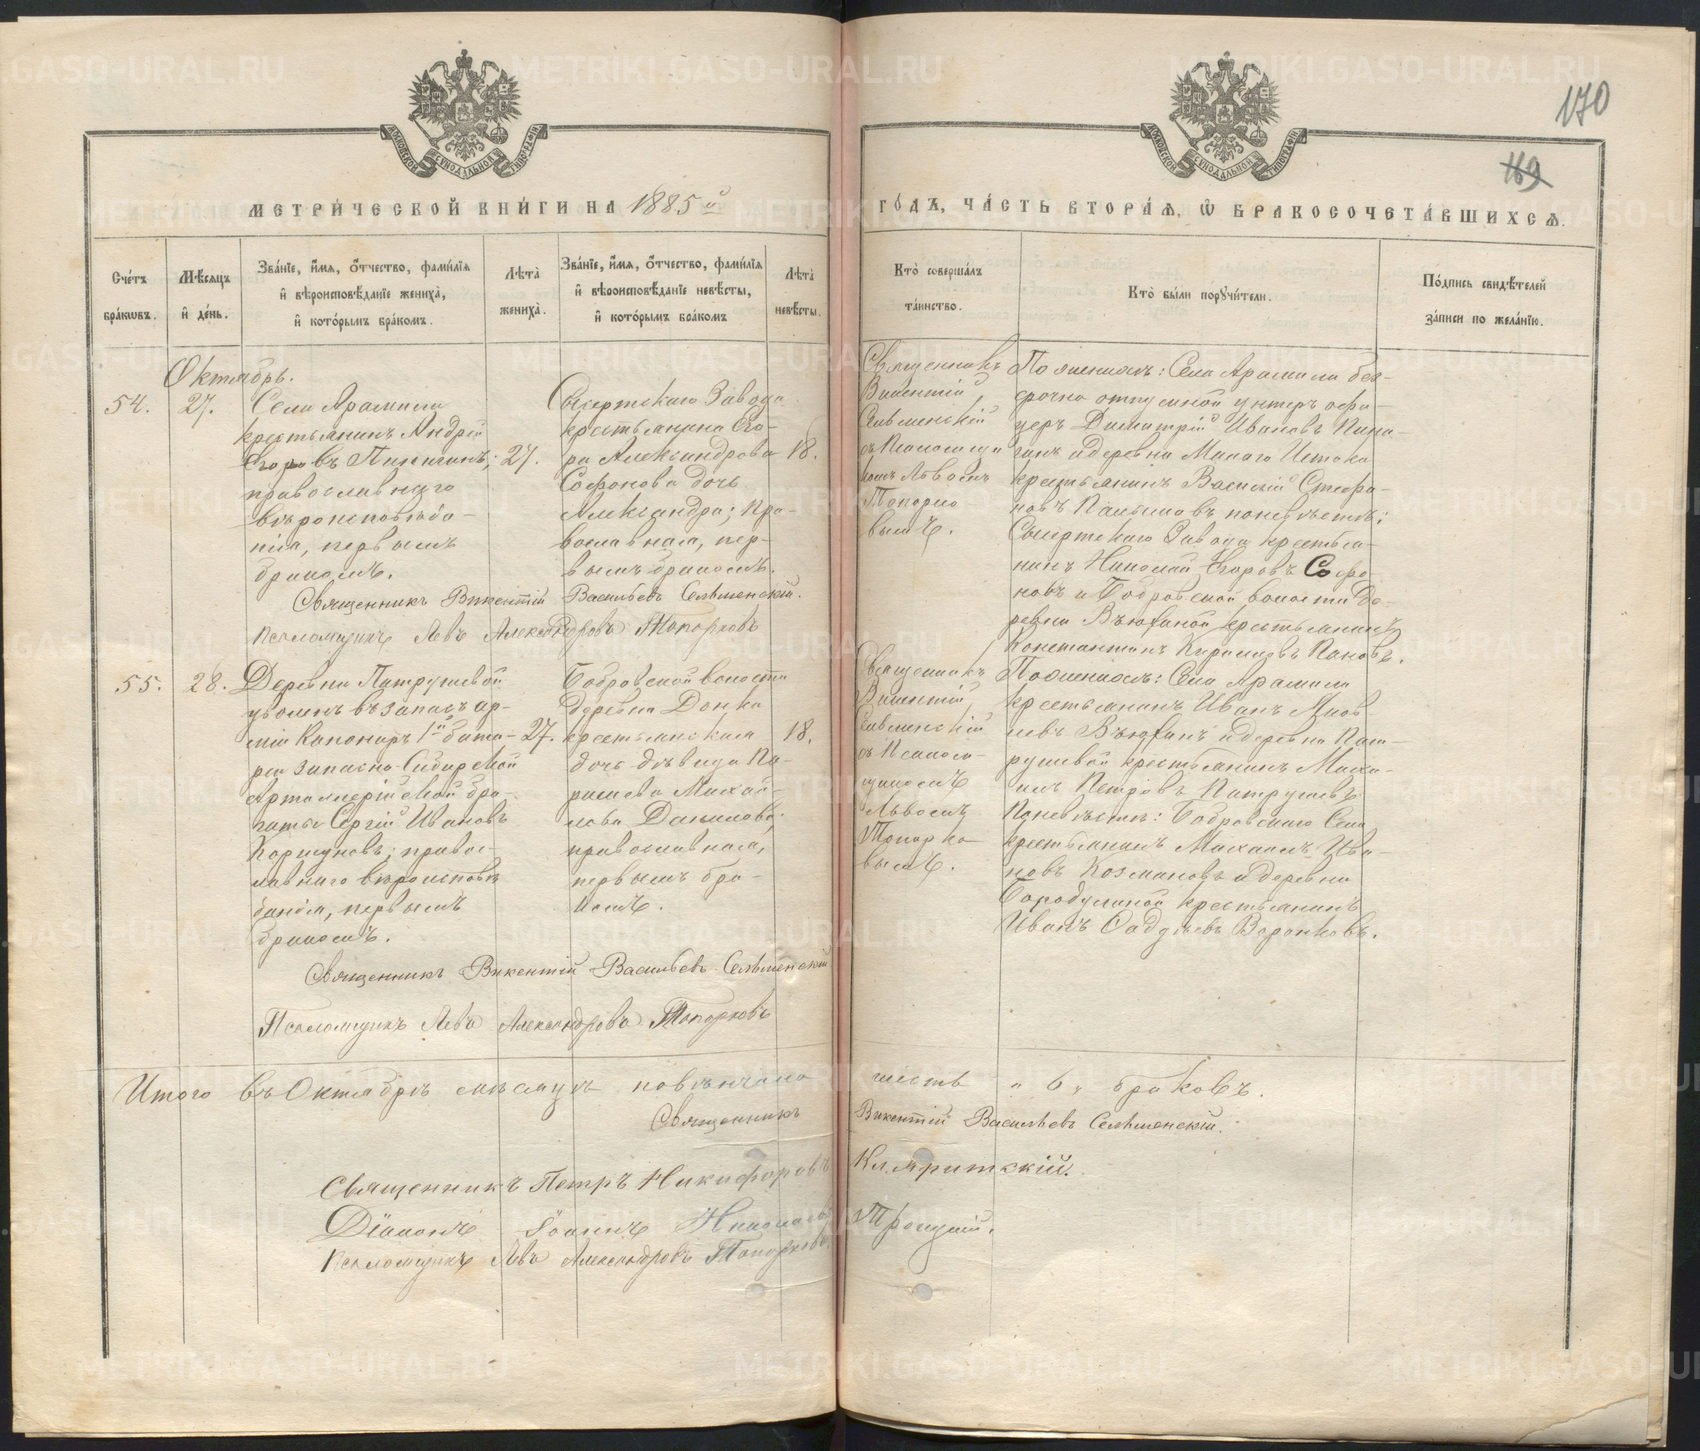 170
169
МЕТРИ́ЧЕСКОЙ КНИ́ГИ НА 1885й ГО́ДЪ, ЧА́СТЬ ВТОРА́Я, Ѽ БРАКОСОЧЕТА́ВШИХСЯ.
Сче́тъ бра́кωвъ.
Мѣ́сяцъ и де́нь.
Зва́нїе, и́мя, о́тчество, фами́лїя и вѣроисповѣ́данїе жениха̀, и кото́рымъ бра́комъ.
Лѣта̀ жениха̀.
Зва́нїе, и́мя, о́тчество, фами́лїя и вѣроисповѣ́данїе невѣ́сты, и кото́рымъ бра́комъ
Лѣта̀ невѣ́сты.
Кто̀ соверша́лъ та́инство.
Кто̀ бы́ли порꙋчи́тели.
По́дпись свидѣ́телей за́писи по жела́нїю.
Октябрь.
54.
27.
Села Арамили
крестьянинъ Андрей
въ Пинигинъ;
православнаго
вѣроисповѣда-
нія, первымъ
бракомъ.
27.
Сысертскаго Завода
крестьянина Его-
ра Александрова
Софонова дочь
Александра; пра-
вославная, пер-
вымъ бракомъ.
18.
Священникъ
Викентій
Сельменскій
съ Псаломщи
комъ Львомъ
Топорко
вымъ.
По женихѣ: Села Арамили без-
срочно отпускной унтеръ офи-
церъ Димитрій Ивановъ Пини-
гинъ и деревни Малаго Истока
крестьянинъ Василій Стефа-
новъ Пальшовъ по невѣстѣ:
Сысертскаго Завода крестья-
нинъ Николай Егоровъ Софо
новъ и Бобровской волости де-
ревни Вьюхиной крестьянинъ
Константинъ Пановъ.
Священникъ Викентій Васильевъ Сельменскій.
Псаломщикъ Левъ Александровъ Топорковъ
55.
28.
Деревни Патрушевой
уволен. въ запасъ ар-
міи Канониръ 1й бата-
реи Запасно-Сибирской
Артиллерійской бри-
гады Сергій Ивановъ
Коршуновъ; правос-
лавнаго вѣроисповѣ
данія, первымъ
бракомъ.
27.
Бобровской волости
деревни
крестьянская
дочь дѣвица Па-
раскева Михай-
лова Данилова,
православная,
первымъ бра-
комъ.
18.
Священникъ
Викентій
Сельменскій
съ Псалом
щикомъ
Львомъ
Топорко
вымъ.
По женихѣ: Села Арамили
крестьянинъ Иванъ Яков-
левъ Вьюхинъ и деревни Пат-
рушевой крестьянинъ Миха-
илъ Петровъ Патрушевъ
По невѣстѣ: Бобровскаго Села
крестьянинъ Михаилъ Ива-
новъ Козмановъ и деревни
Бородулиной крестьянинъ
Иванъ Фаддѣевъ Воронковъ.
Священникъ Викентій Васильевъ Сельменскій
Псаломщикъ Левъ Александровъ Топорковъ
Итого въ Октябрѣ мѣсяцѣ повѣнчано шесть „ 6 „ браковъ.
Священникъ Викентій Васильевъ Сельменскій.
Священникъ Петръ Никифоровъ
Діаконъ Іоаннъ Николаевъ Троицкій.
Псаломщикъ Левъ Александровъ Топорковъ
METRIKI.GASO-URAL.RU